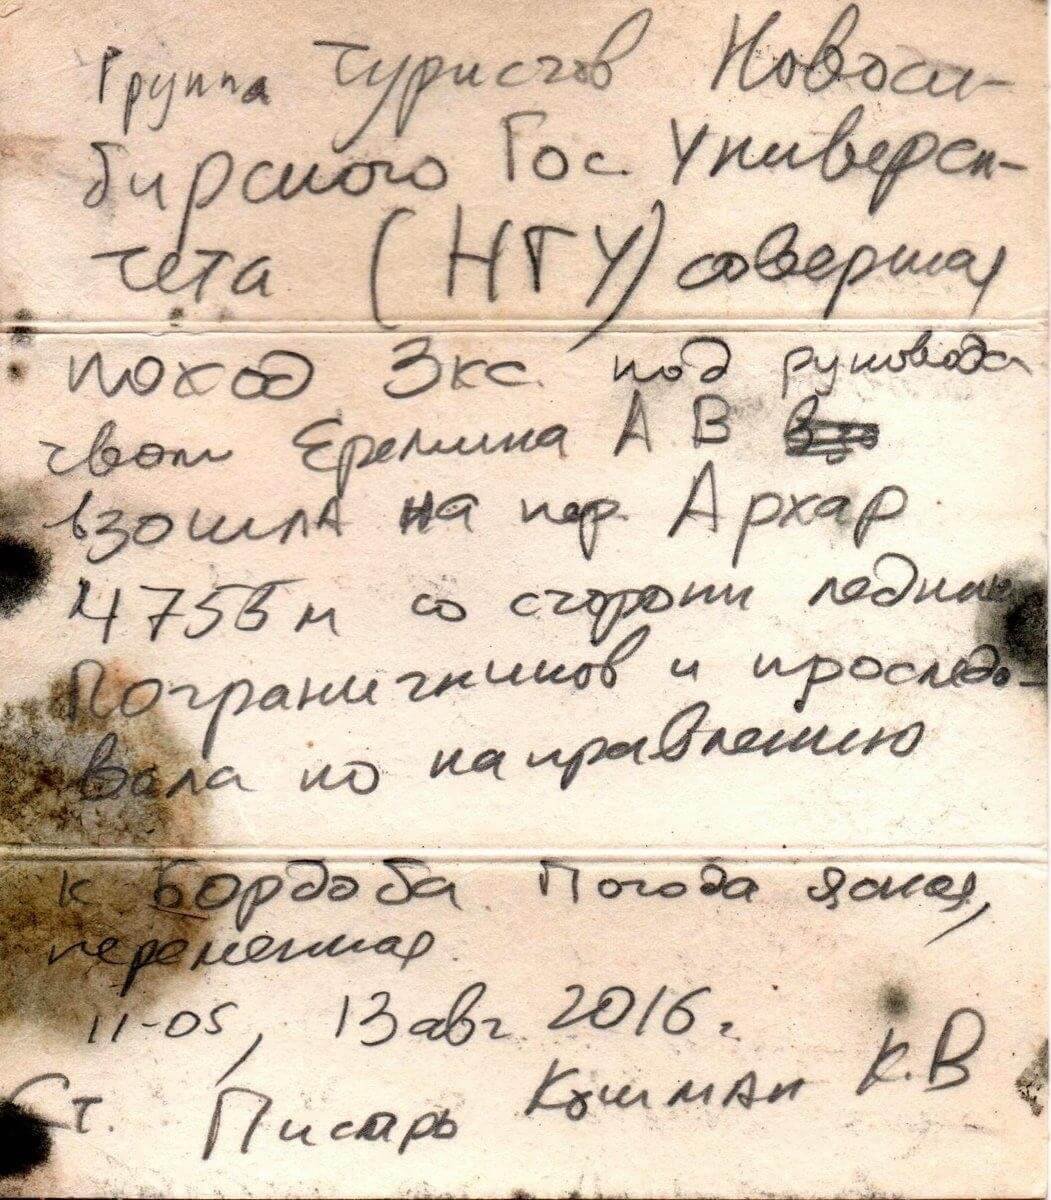 Группа туристов Новоси-
бирского Гос. Универси-
тета (НГУ) совершая
поход 3кс. под руководс
твом Еремина А В
взошла на пер. Архар
4755м со стороны ледника
Пограничников и проследо-
вала по направлению
к Бордоба. Погода ясная,
переменная.
11-05, 13 авг 2016 г.
Ст. Писарь Кошман К.В